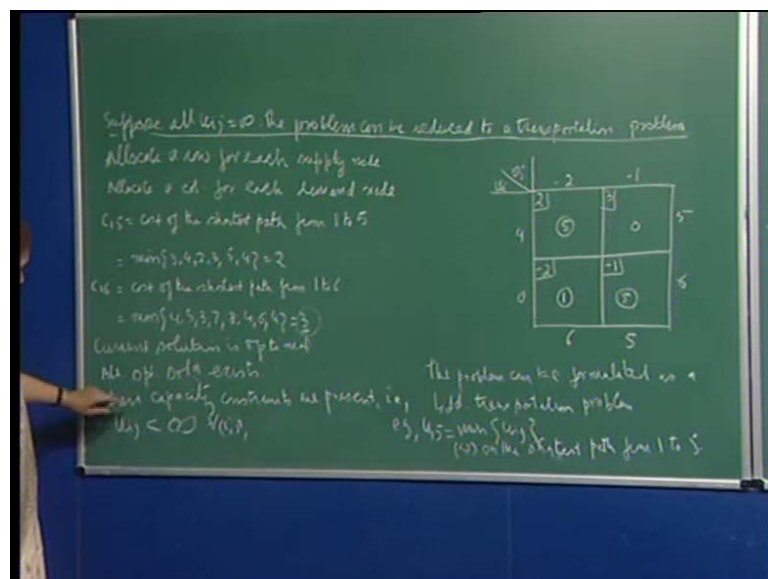 Suppose all uij = ∞. The problem can be reduced to a transportation problem
Allocate a row for each supply node
Allocate a col. for each demand node
C15 = cost of the shortest path from 1 to 5
= min{3,4,2,3,5,4} = 2
C16 = cost of the shortest path from 1 to 6
= min{4,5,3,7,8,4,6,4} = 3
Current solution is optimal
Alt opt soln exists
capacity constraints are present, i.e.,
uij < ∞ ∀(i,j)
ui vj -2 -1
4 2 5 3 0 5
0 -2 1 -1 5 6
6 5
The problem can be formulated as a
b,dd. transportation problem
e.g, u15 = min{uij}
(i,j) on the shortest path from 1 to 5.